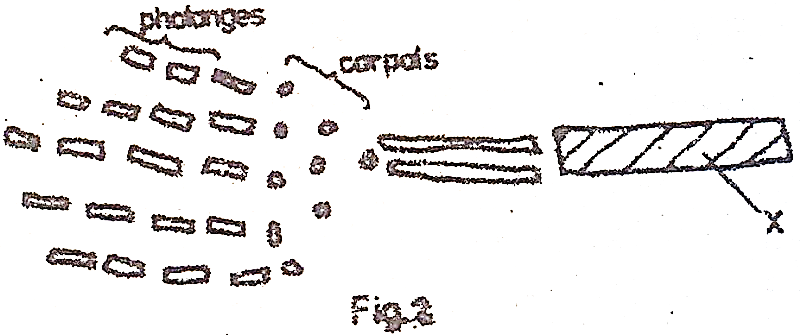 phalanges
carpals
X
Fig.2